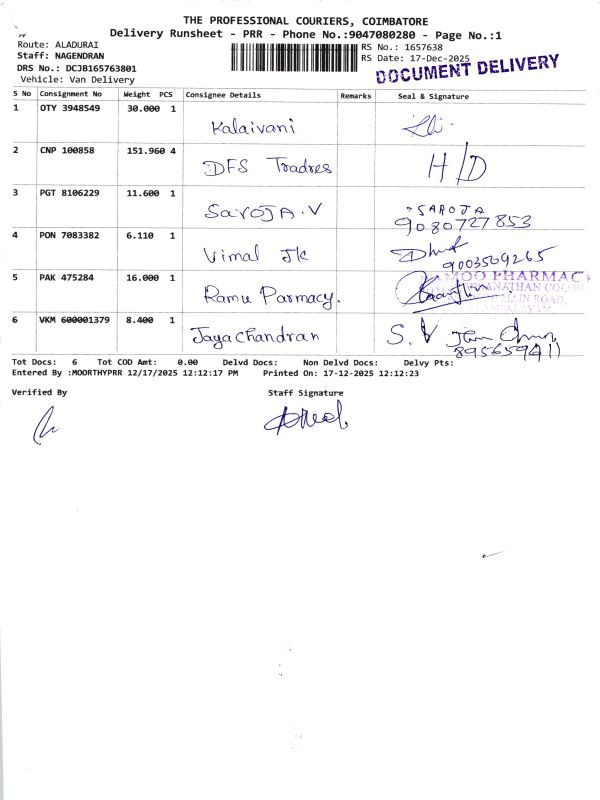 THE PROFESSIONAL COURIERS, COIMBATORE
Delivery Runsheet - PRR - Phone No.:9047080280 - Page No.:1
Route: ALADURAI RS No.: 1657638
Staff: NAGENDRAN RS Date: 17-Dec-2025
DRS No.: DCJB165763801 DOCUMENT DELIVERY
Vehicle: Van Delivery
S No Consignment No Weight PCS Consignee Details Remarks Seal & Signature
1 OTY 3948549 30.000 1 Kalaivani
2 CNP 100858 151.960 4 DFS Tradres H/D
3 PGT 8106229 11.600 1 SaroJA.V SAROJA
9080727853
4 PON 7083382 6.110 1 Vimal Jk
9003509265
5 PAK 475284 16.000 1 Ramu Parmacy. MOO PHARMACY
MAIN ROAD,
6 VKM 600001379 8.400 1 Jayachandran S. V
Tot Docs: 6 Tot COD Amt: 0.00 Delvd Docs: Non Delvd Docs: Delvy Pts:
Entered By :MOORTHYPRR 12/17/2025 12:12:17 PM Printed On: 17-12-2025 12:12:23
Verified By Staff Signature